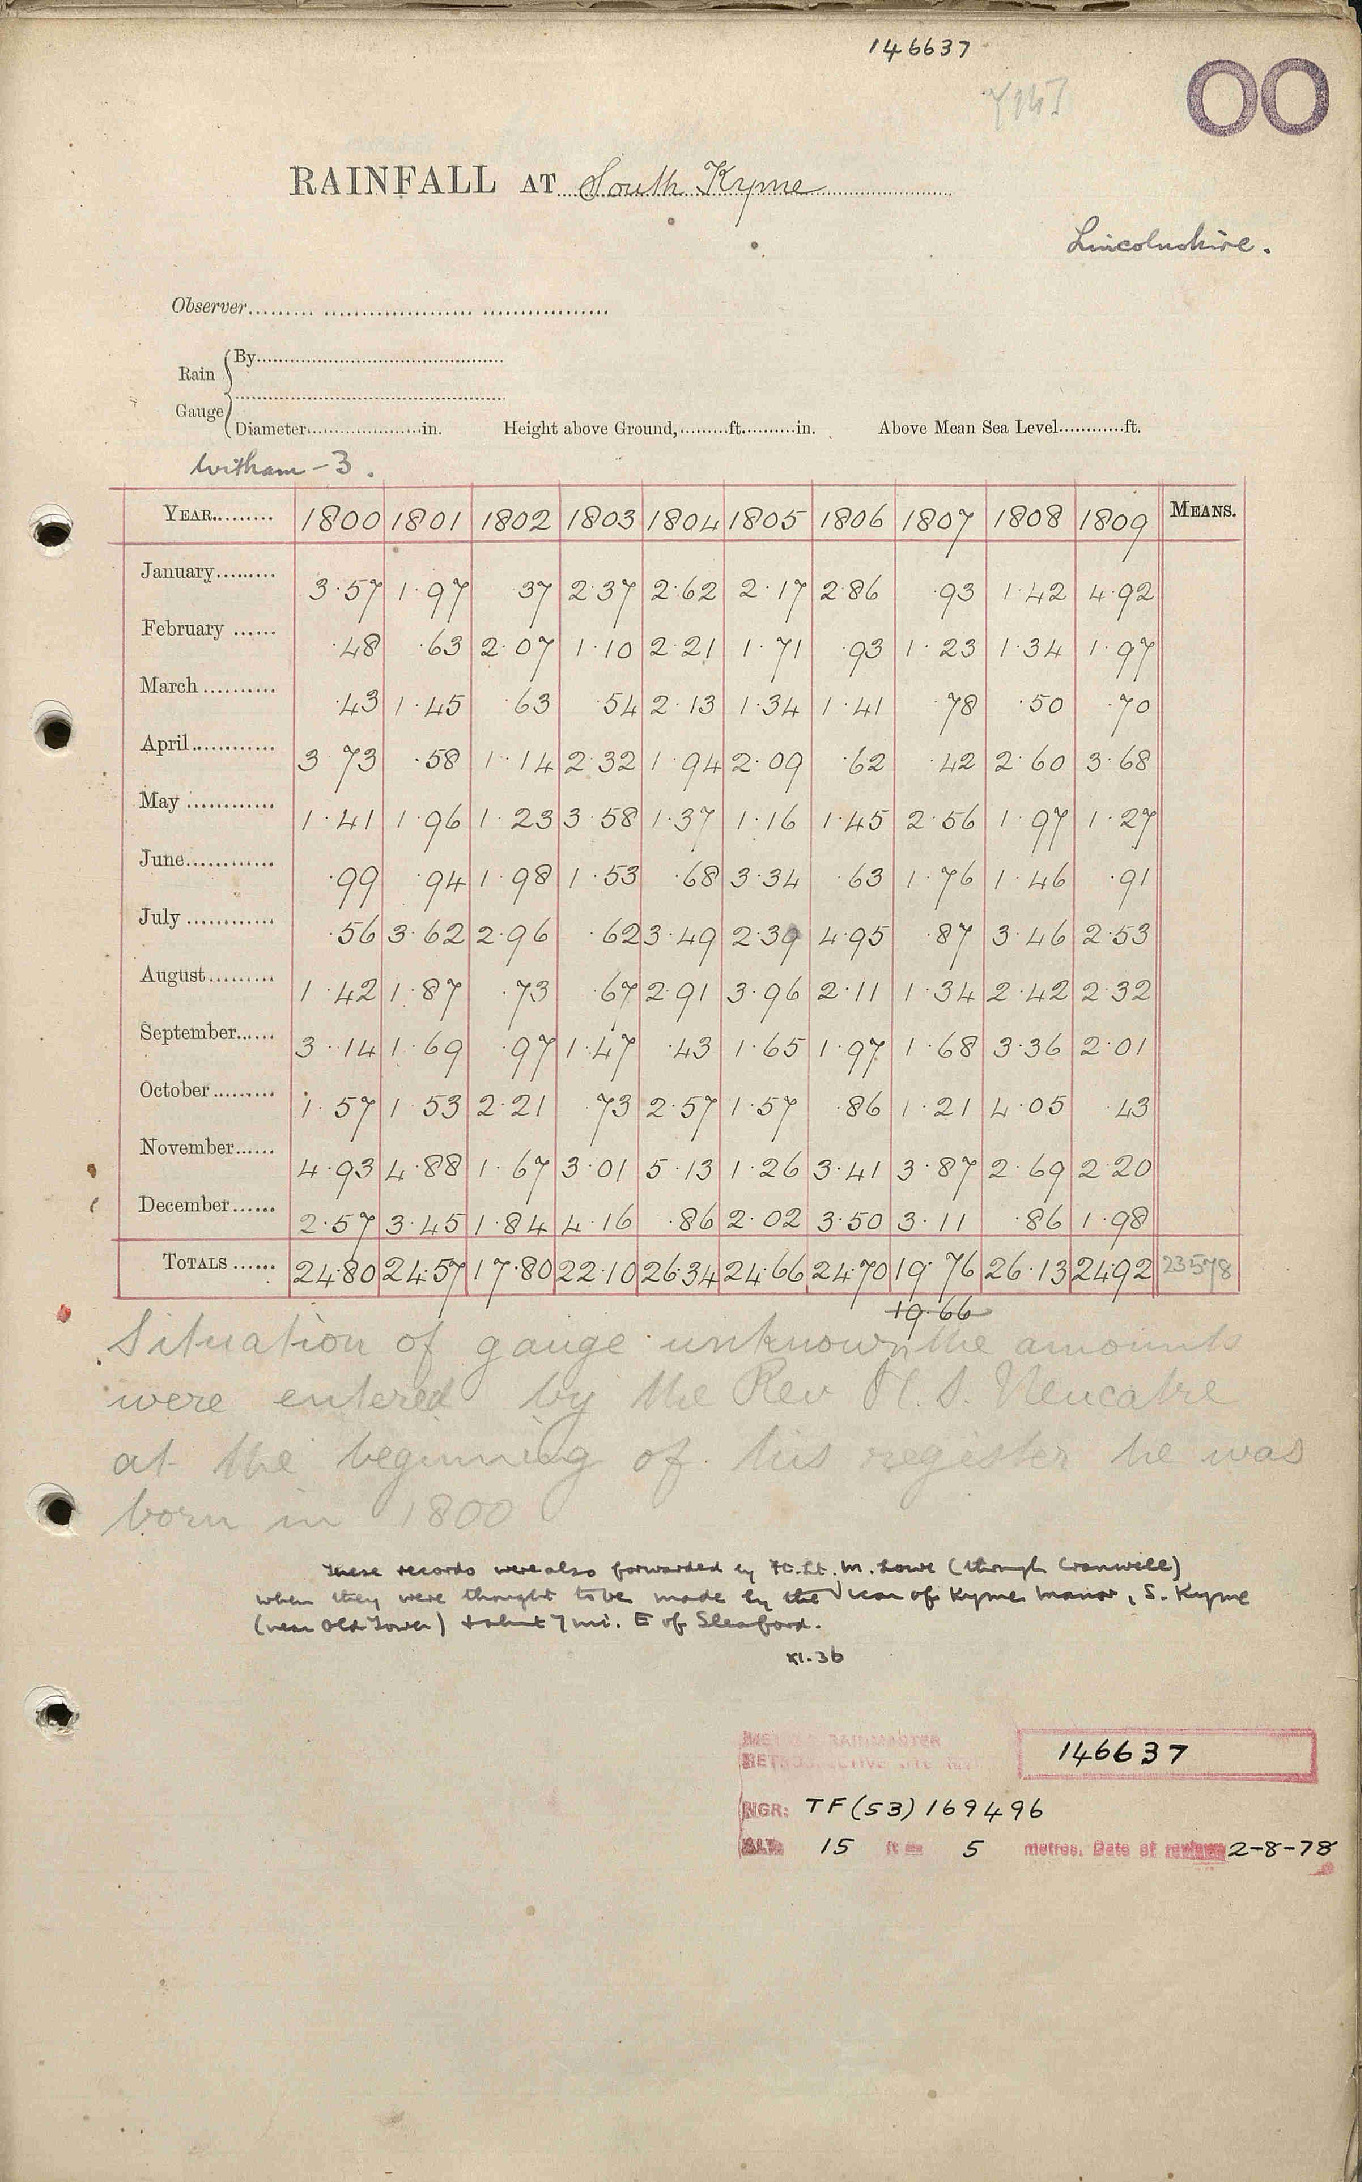 146637
OO
RAINFALL AT South Kyme
Lincolnshire.
Observer
Rain Gauge { By
Diameter in. Height above Ground, ft. in. Above Mean Sea Level ft.
Witham - 3.
YEAR 1800 1801 1802 1803 1804 1805 1806 1807 1808 1809 MEANS.
January 3.57 1.97 .37 2.37 2.62 2.17 2.86 .93 1.42 4.92
February .48 .63 2.07 1.10 2.21 1.71 .93 1.23 1.34 1.97
March .43 1.45 .63 .54 2.13 1.34 1.41 .78 .50 .70
April 3.73 .58 1.14 2.32 1.94 2.09 .62 .42 2.60 3.68
May 1.41 1.96 1.23 3.58 1.37 1.16 1.45 2.56 1.97 1.27
June .99 .94 1.98 1.53 .68 3.34 .63 1.76 1.46 .91
July .56 3.62 2.96 .62 3.49 2.39 4.95 .87 3.46 2.53
August 1.42 1.87 .73 .67 2.91 3.96 2.11 1.34 2.42 2.32
September 3.14 1.69 .97 1.47 .43 1.65 1.97 1.68 3.36 2.01
October 1.57 1.53 2.21 .73 2.57 1.57 .86 1.21 4.05 .43
November 4.93 4.88 1.67 3.01 5.13 1.26 3.41 3.87 2.69 2.20
December 2.57 3.45 1.84 4.16 .86 2.02 3.50 3.11 .86 1.98
TOTALS 24.80 24.57 17.80 22.10 26.34 24.66 24.70 19.76 26.13 24.92 23578
19.66
Situation of gauge unknown, the amounts
were entered by the Rev H. S. 
at the beginning of his register he was
born in 1800
These records were also forwarded by Ft. Lt. M. Lowe (through Cranwell)
when they were thought to be made by the Vicar of Kyme Manor, S. Kyme
(near Old Tower) + about 7 mi. E of Sleaford.
XI.36
RAINMASTER
146637
NGR: TF(53)169496
ALT: 15 ft 5 metres. Date of review 2-8-78